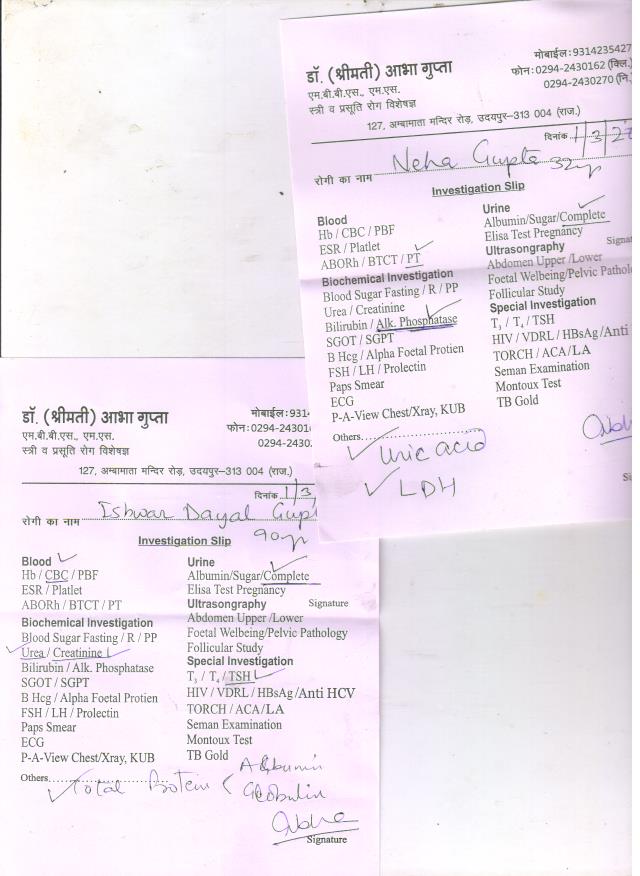 डॉ. (श्रीमती) आभा गुप्ता
एम.बी.बी.एस., एम.एस.
स्त्री व प्रसूति रोग विशेषज्ञ
मोबाईल:9314235427
फोन:0294-2430162 (क्लि.)
0294-2430270 (नि.
127, अम्बामाता मन्दिर रोड़, उदयपुर–313 004 (राज.)
दिनांक 1/3/2
रोगी का नाम Neha Gupta 32yr
Investigation Slip
Blood
Hb / CBC / PBF
ESR / Platlet
ABORh / BTCT / PT
Biochemical Investigation
Blood Sugar Fasting / R / PP
Urea / Creatinine
Bilirubin / Alk. Phosphatase
SGOT / SGPT
B Hcg / Alpha Foetal Protien
FSH / LH / Prolectin
Paps Smear
ECG
P-A-View Chest/Xray, KUB
Urine
Albumin/Sugar/Complete
Elisa Test Pregnancy
Signat
Ultrasongraphy
Abdomen Upper /Lower
Foetal Welbeing/Pelvic Pathol
Follicular Study
Special Investigation
T3 / T4 / TSH
HIV / VDRL / HBsAg / Anti
TORCH / ACA/LA
Seman Examination
Montoux Test
TB Gold
Others
Uric acid
LDH
Si
डॉ. (श्रीमती) आभा गुप्ता
एम.बी.बी.एस., एम.एस.
स्त्री व प्रसूति रोग विशेषज्ञ
मोबाईल:931
फोन:0294-24301
0294-2430
127, अम्बामाता मन्दिर रोड़, उदयपुर–313 004 (राज.)
दिनांक 1/3/
रोगी का नाम Ishwar Dayal Gupt
90yr
Investigation Slip
Blood
Hb / CBC / PBF
ESR / Platlet
ABORh / BTCT / PT
Biochemical Investigation
Blood Sugar Fasting / R / PP
Urea / Creatinine
Bilirubin / Alk. Phosphatase
SGOT / SGPT
B Hcg / Alpha Foetal Protien
FSH / LH / Prolectin
Paps Smear
ECG
P-A-View Chest/Xray, KUB
Urine
Albumin/Sugar/Complete
Elisa Test Pregnancy
Ultrasongraphy Signature
Abdomen Upper /Lower
Foetal Welbeing/Pelvic Pathology
Follicular Study
Special Investigation
T3 / T4 / TSH
HIV / VDRL / HBsAg / Anti HCV
TORCH / ACA/LA
Seman Examination
Montoux Test
TB Gold
Others
Total Protein < Albumin
Globulin
Abha
Signature